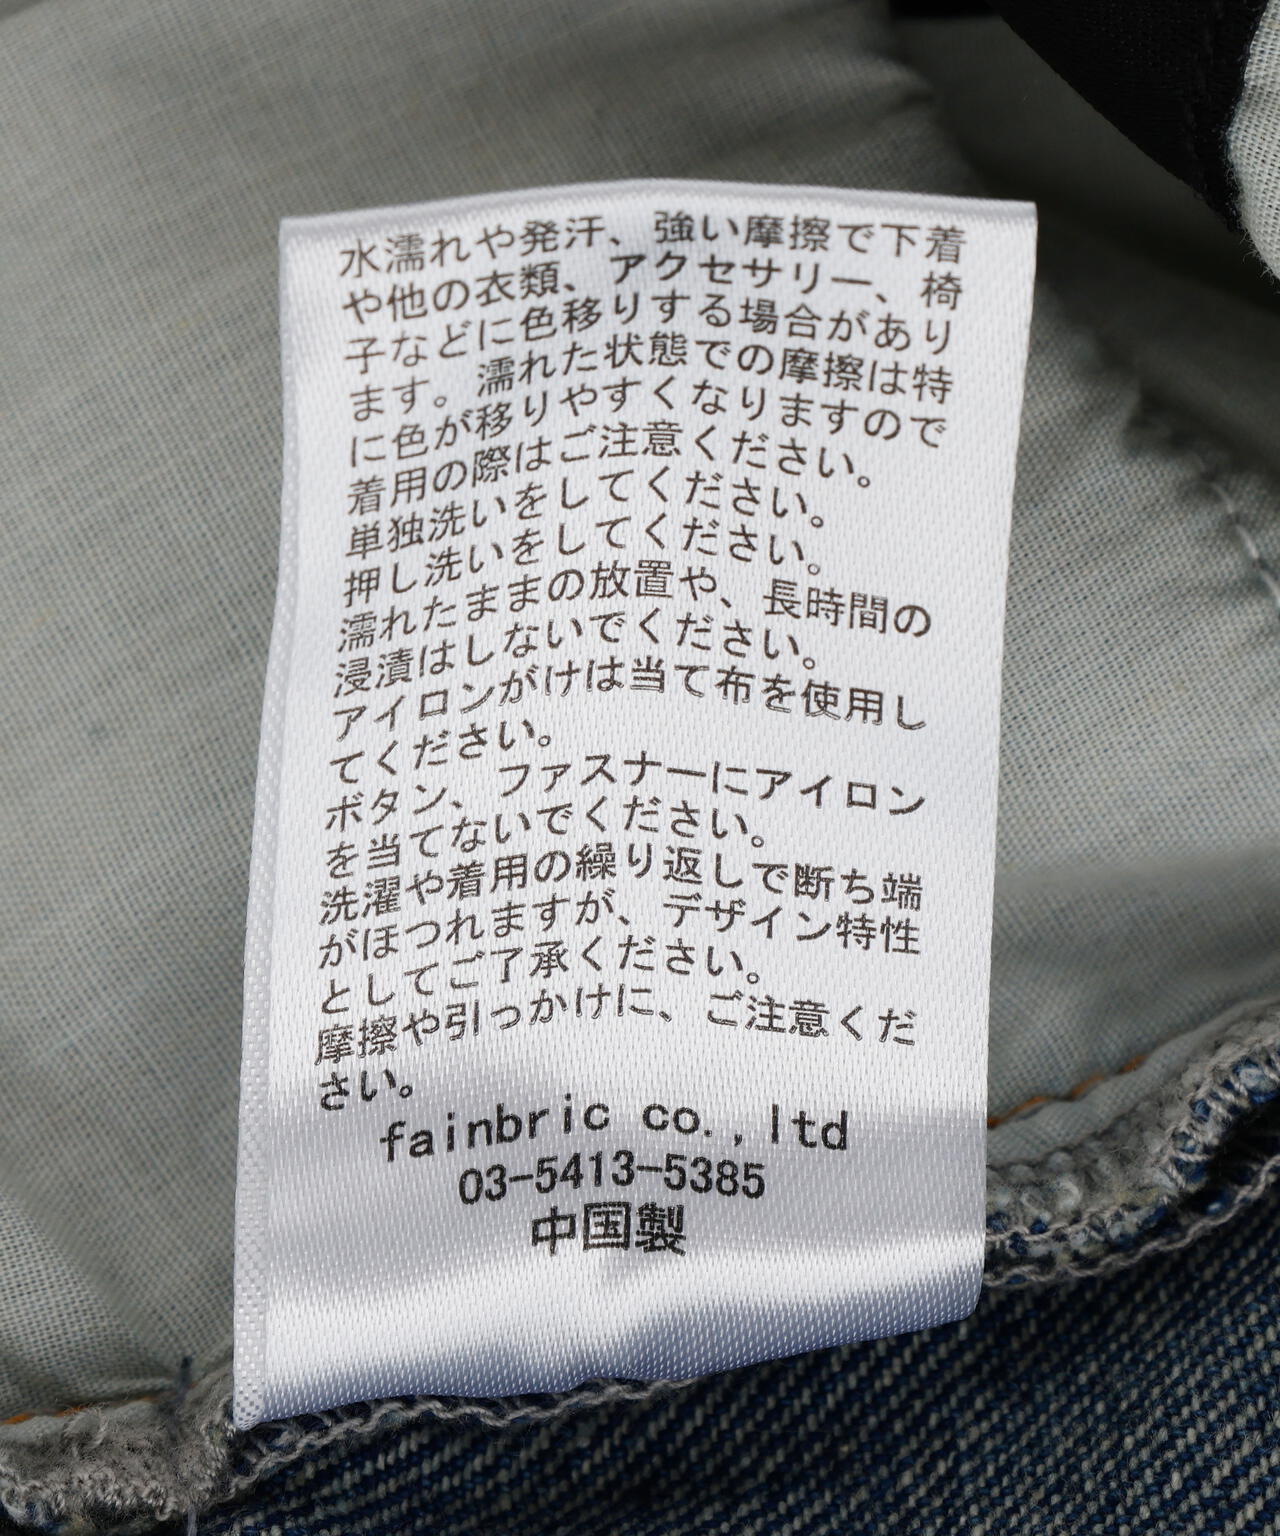 水濡れや発汗、強い摩擦で下着
や他の衣類、アクセサリー、椅
子などに色移りする場合があり
ます。濡れた状態での摩擦は特
に色が移りやすくなりますので
着用の際はご注意ください。
単独洗いをしてください。
押し洗いをしてください。
濡れたままの放置や、長時間の
浸漬はしないでください。
アイロンがけは当て布を使用し
てください。
ボタン、ファスナーにアイロン
を当てないでください。
洗濯や着用の繰り返しで断ち端
がほつれますが、デザイン特性
としてご了承ください。
摩擦や引っかけに、ご注意くだ
さい。
fainbric co.,ltd
03-5413-5385
中国製